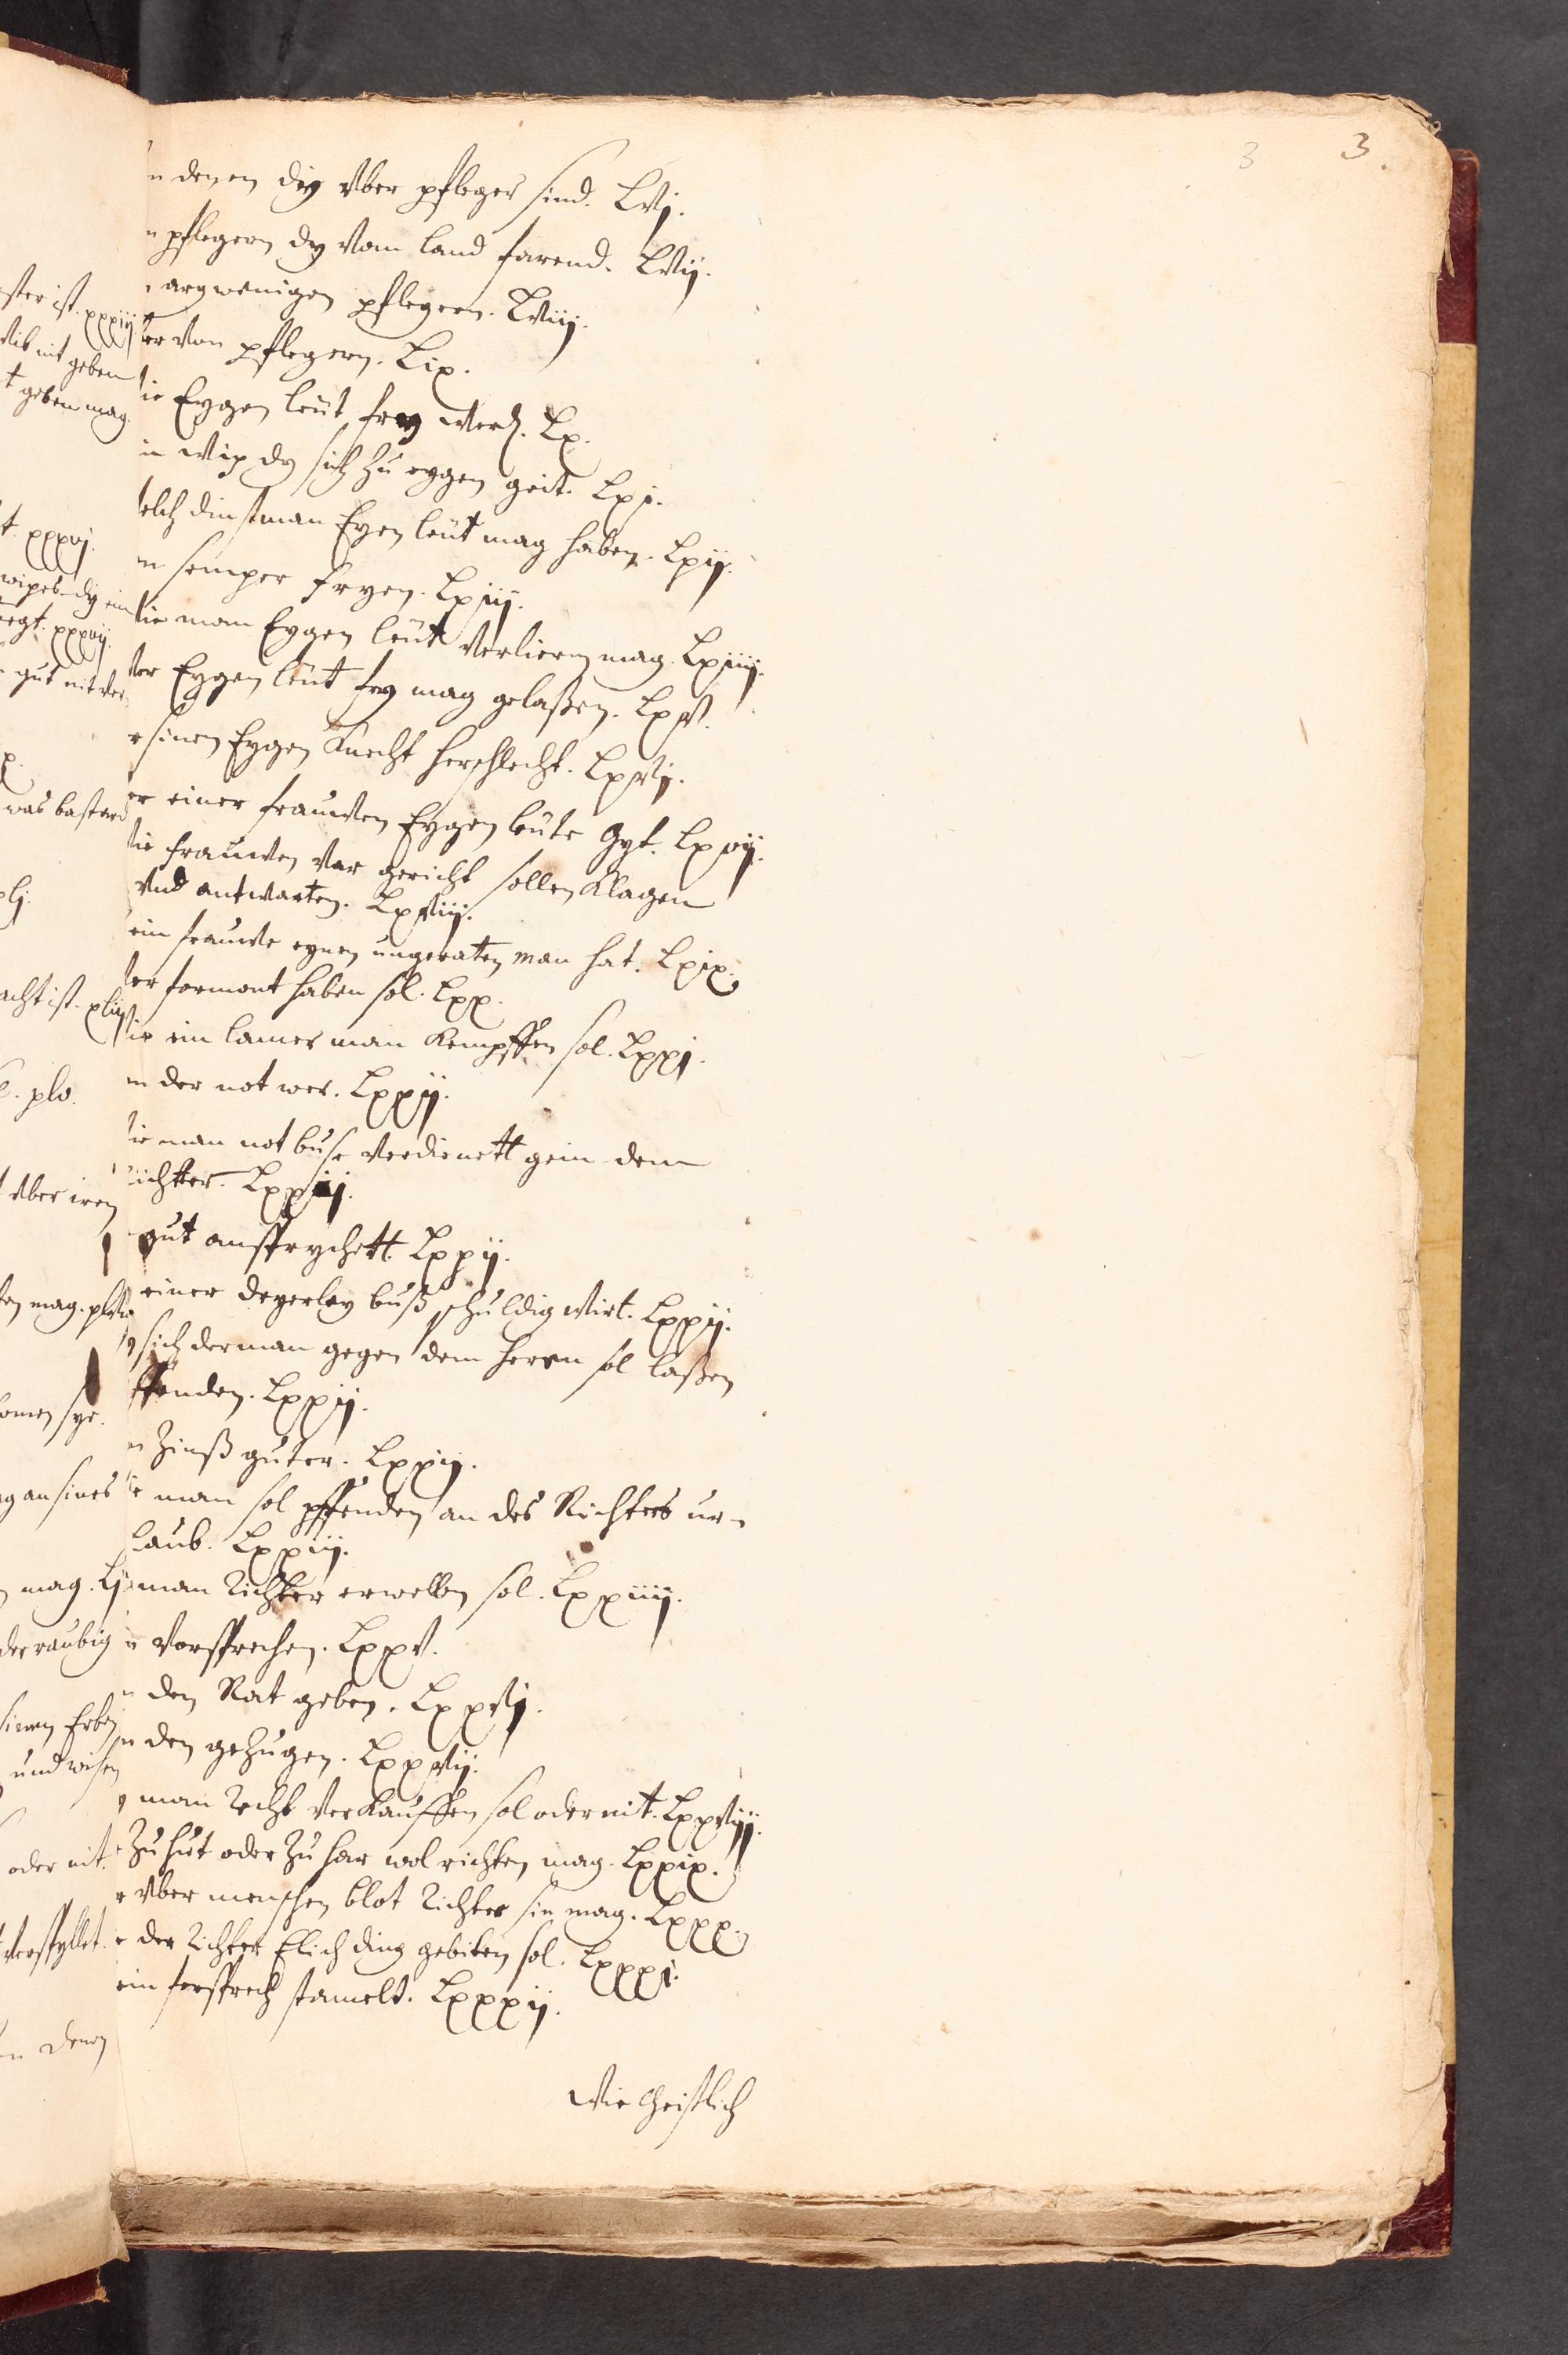 3 3.
n denen diy vber pfleger sind. Lvj.
n pflegern dy vom land farend. Lvij.
argwenigen pflegern. Lviij.
er von pflegern. Lix.
ie Eygen leüt frey werd. Lx.
in wip dy sich zu eygen geit. Lxj.
elch dinstman Eygen leüt mag haben. Lxij.
n semper fryen. Lxiij.
ie man Eygen leüt verliern mag. Lxiiij.
er Eygen leüt fry mag gelaßen. Lxv.
r sinen Eygen Knecht herschlecht. Lxvj.
er einer frauwen Eygen leüte gyt. Lxvij.
ie frauwen vor gericht sollen Klagen
vnd antworten. Lxviij.
ein frauwe eynen ungeraten man hat. Lxix.
er formont haben sol. Lxx.
ie ein lamer man Kempffen sol. Lxxj.
n der not wer. Lxxij.
ie man not buse verdienett gein dem
richtter. Lxxij.
gut ansprychett. Lxxij.
einer dryerley buß schuldig wirt. Lxxij.
sich der man gegen dem herrn sol laßen
ffenden. Lxxij.
n Zinß guter. Lxxij.
e man sol pffenden an des Richters ur-
laub. Lxxiij.
man Richter erwellen sol. Lxxiiij.
n vorsprechen. Lxxv.
n den Rat geben. Lxxvj.
n den gezugen. Lxxvij.
man Recht verkauffen sol oder nit. Lxxviij.
Zu hut oder Zu har wol richten mag. Lxxix.
r vber menschen blot Richter sin mag. Lxxx.
e der Richter Elich ding gebiten sol. Lxxxj.
ein forsprech stamelt. Lxxxij.
Wie Geistlich
ster ist. xxxiij.
vib nit geben
t geben mag.
t. xxxvj.
wipes dy ein
egt. xxxvij.
gut nit ver
x.
was bastard
xlj.
acht ist. xliij
xlv.
vber iren
en mag.
omen sye.
g an sines
mag. Lj
der raubig
sinen Erben
und wisen
oder nit.
verspyllet.
n denen